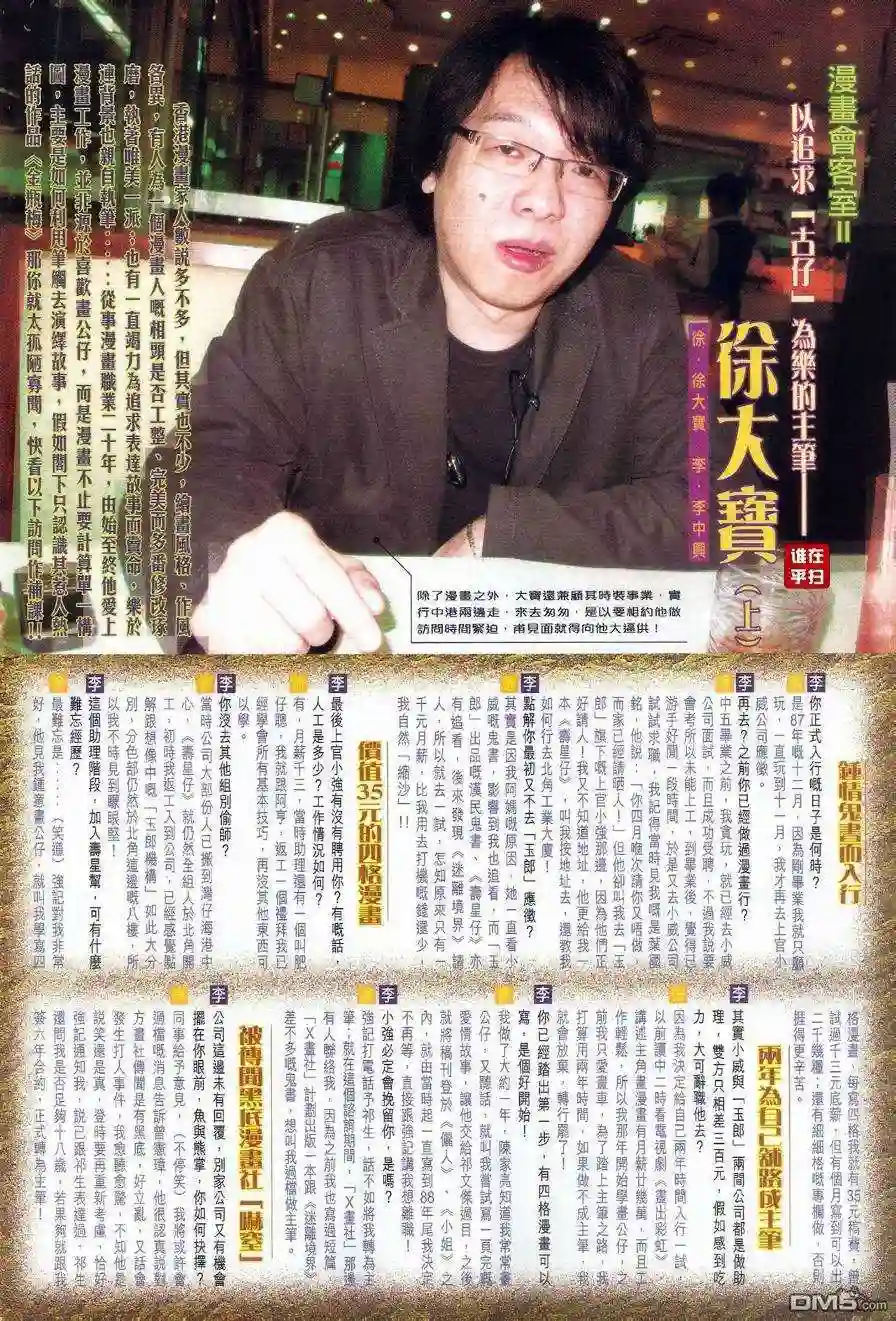 漫畫會客室II
以追求「古仔」為樂的主筆——
徐大寶(上)
徐．徐大寶 李．李中興
誰在
乎扫
香港漫畫家人數說多不多，但其實也不少，繪畫風格、作風
各異，有人為一個漫畫人嘅相頭是否工整、完美而多番修改琢
磨，執著唯美一派；也有一直竭力為追求表達故事而賣命，樂於
連背景也親自執筆……從事漫畫職業二十年，由始至終他愛上
漫畫工作，並非源於喜歡畫公仔，而是漫畫不止要計算單一構
圖，主要是如何利用筆觸去演繹故事，假如閣下只認識其惹人熱
話的作品《金瓶梅》那你就太孤陋寡聞，快看以下訪問作補課!!
除了漫畫之外，大寶還兼顧其時裝事業，實
行中港兩邊走，來去匆匆，是以要相約他做
訪問時間緊迫，甫見面就得向他大逼供！
鍾情鬼書而入行
李 你正式入行嘅日子是何時？
是87年嘅十二月，因為剛畢業我就只顧
玩，一直玩到十一月，我才再去上官小
威公司應徵。
李 再去？之前你已經做過漫畫行？
中五畢業之前，我貪玩，就已經去小威
公司面試，而且成功受聘，不過我說要
會考所以未能上工，到畢業後，覺得已
游手好閒一段時間，於是又去小威公司
試試求職，我記得當時見我嘅是葉國
銘，他說：「你四月嗰次請你又唔做，
而家已經請晒人！」但他卻叫我去「玉
郎」旗下嘅上官小強那邊，因為他們正
好請人！我又不知道地址，他更給我一
本《壽星仔》，叫我按地址去，還教我
如何行去北角工業大廈！
李 點解你最初又不去「玉郎」應徵？
其實是因我阿媽嘅原因，她一直看小
威嘅鬼書，影響到我也追看，而「玉
郎」出品嘅漢民鬼書、《壽星仔》亦
有追看，後來發現《迷離境界》請
人，所以就去一試，怎知原來只有一
千元月薪，比我用去打機嘅錢還少，
我自然「縮沙」!!
價值35元的四格漫畫
李 最後上官小強有沒有聘用你？有嘅話，
人工是多少？工作情況如何？
有，月薪千三，當時助理還有一個叫肥
仔聰，我就跟阿亨，返工一個禮拜我已
經學會所有基本技巧，再沒其他東西可
以學。
李 你沒去其他組別偷師？
當時公司大部份人已搬到灣仔海港中
心，《壽星仔》就仍然全組人於北角開
工，初時我返工入到公司，已經感覺點
解跟想像中嘅「玉郎機構」如此大分
別，分色部仍然於北角這邊嘅八樓，所
以我不時見到矇眼堅！
李 這個助理階段，加入壽星幫，可有什麼
難忘經歷？
最難忘是……（笑道）強記對我非常
好，他見我鍾意畫公仔，就叫我學寫四
格漫畫，每寫四格我就有35元稿費，曾
試過千三元底薪，但有個月寫到可以出
二千幾糧；還有細細格嘅專欄做，否則
捱得更辛苦。
兩年為自己舖路成主筆
李 其實小威與「玉郎」兩間公司都是做助
理，雙方只相差三百元，假如感到吃
力，大可辭職他去？
因為我決定給自己兩年時間入行一試，
以前讀中二時看電視劇《畫出彩虹》
講述主角畫漫畫有月薪廿幾萬，而且工
作輕鬆，所以我那年開始學畫公仔，之
前我只愛畫車，為了踏上主筆之路，我
打算用兩年時間，如果做不成主筆，我
就會放棄，轉行罷了！
李 你已經踏出第一步，有四格漫畫可以
寫，是個好開始！
我做了大約一年，陳家亮知道我常常畫
公仔，又聽話，就叫我嘗試寫一頁完嘅
愛情故事，讓他交給祁文傑過目，之後
就將稿刊登於《儷人》、《小姐》之
內，就由當時起一直寫到88年尾我決定
不再等，直接跟強記講我想離職！
李 小強必定會挽留你，是嗎？
強記打電話予祁生，話不如將我轉為主
筆；就在這個諮詢期間，「X畫社」那邊
有人聯絡我，因為之前我也寫過短篇
「X畫社」計劃出版一本跟《迷離境界》
差不多嘅鬼書，想叫我過檔做主筆。
被傳聞黑底漫畫社「嚇窒」
李 公司這邊未有回覆，別家公司又有機會
擺在你眼前，魚與熊掌，你如何抉擇？
同事給予意見，（不停笑）我將或許會
過檔嘅消息告訴曾憲瑋，他很認真說對
方畫社傳聞是有黑底，好立亂，又話會
發生打人事件，我愈聽愈驚，不知他是
說笑還是真，登時要再重新考慮，恰好
強記通知我，說已跟祁生表達過，祁生
還問我是否足夠十八歲，若果夠就跟我
簽六年合約，正式轉為主筆！
DM5.com